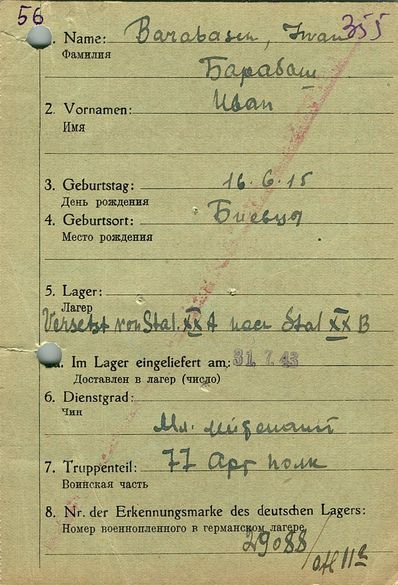 56
355
1. Name: Barabasch, Iwan
Фамилия
Барабаш
2. Vornamen: Иван
Имя
3. Geburtstag: 16.6.15
День рождения
4. Geburtsort:
Место рождения
5. Lager:
Лагер
Versetzt von Stal. XX A nach Stal XX B
a. Im Lager eingeliefert am: 31.7.43
Доставлен в лагер (число)
6. Dienstgrad:
Чин
Мл. лейтенант
7. Truppenteil: 77 Арт полк
Воинская часть
8. Nr. der Erkennungsmarke des deutschen Lagers:
Номер военнопленного в германском лагере
29088